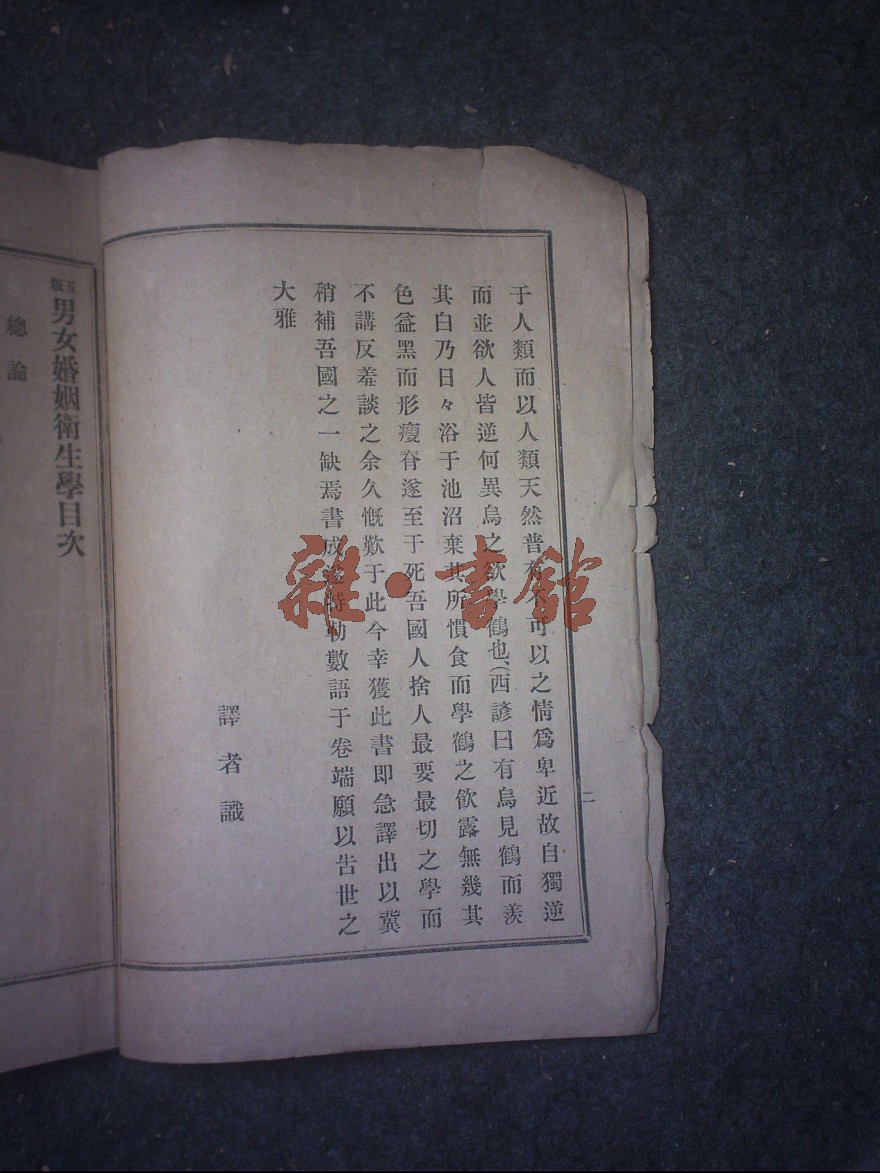 于人類而以人類天然普有不可以之情爲卑近故自獨逆
而並欲人皆逆何異烏之欲學鶴也、(西諺曰有烏見鶴而羨
其白乃日々浴于池沼棄其所慣食而學鶴之飲露無幾其
色益黑而形瘦脊遂至于死吾國人捨人最要最切之學而
不講反羞談之余久慨歎于此今幸獲此書即急譯出以冀
稍補吾國之一缺焉書成遂特勒數語于卷端願以告世之
大雅
譯者識
二
五版男女婚姻衛生學目次
總論
雜·書館